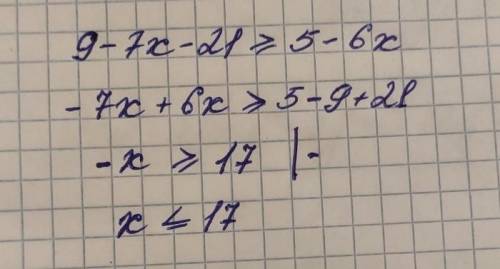 9-7x-21≥5-6x
-7x+6x≥5-9+21
-x≥17 |-
x≤17